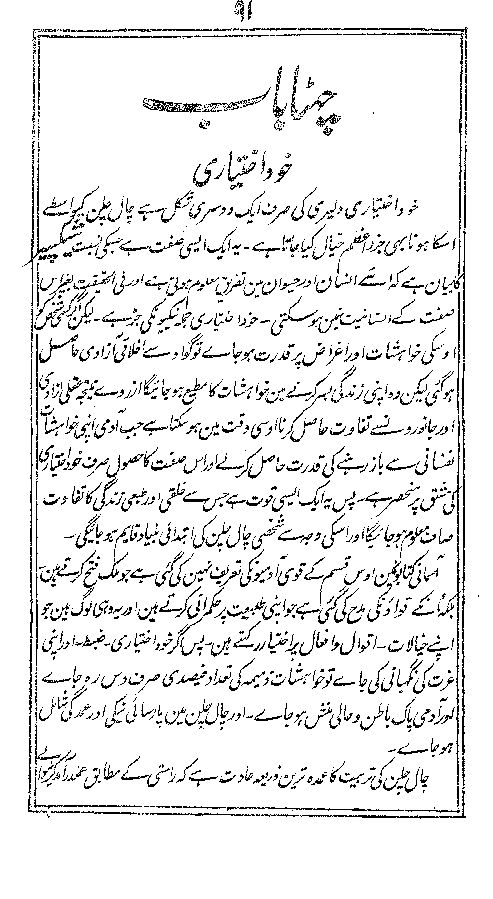 ۹۱
چھٹا باب
خود اختیاری
خود اختیاری دلیری کی صرف ایک دوسری شکل ہے چال چلن کے واسطے
اسکا ہونا بھی جزو اعظم خیال کیا جاتا ہے۔ یہ ایک ایسی صفت ہے جسکی نسبت شیکسپیر
کا بیان ہے کہ اس سے انسان اور حیوان مین تفریق معلوم ہوتی ہے اور فی الحقیقت بغیر اس
صفت کے انسانیت نہین ہو سکتی۔ خود اختیاری تمام نیکیونکی جڑ ہے۔ لیکن اگر کسی شخص کو
اوسکی خواہشات اور اغراض پر قدرت ہو جاے تو گو اوسے اخلاقی آزادی حاصل
ہو گئی لیکن وہ اپنی زندگی بسر کرنے مین خواہشات کا مطیع ہو جائیگا از روے نتیجہ عقلی آزادی
اور جانورونسے تفاوت حاصل کرنا اوسی وقت مین ہو سکتا ہے جب آدمی اپنی خواہشات
نفسانی سے باز رہنے کی قدرت حاصل کرلے اور اس صفت کا حصول صرف خود اختیاری
کی مشق پر منحصر ہے۔ پس یہ ایک ایسی قوت ہے جس سے خلقی اور طبعی زندگی کا تفاوت
صاف معلوم ہو جائیگا اور اسکی وجہ سے شخصی چال چلن کی ابتدائی بنیاد قایم ہو جائیگی۔
آسمانی کتابونمین اوس قسم کے قوی آدمیونکی تعریف نہین کی گئی ہے جو ملک فتح کرتے ہین
بلکہ اونکے قواونکی مدح کی گئی ہے جو اپنی طبیعت پر حکمرانی کرتے ہین اور یہ وہی لوگ ہین جو
اپنے خیالات۔ اقوال و افعال پر اختیار رکھتے ہین۔ پس اگر خود اختیاری۔ ضبط۔ اور اپنی
عزت کی نگہبانی کی جاے تو خواہشات ذمیمہ کی تعداد فیصدی صرف دس رہ جاے
اور آدمی پاک باطن و عالی منش ہو جاے۔ اور چال چلن مین پارسائی نیکی اور عمدگی شامل
ہو جاے۔
چال چلن کی تربیت کا عمدہ ترین ذریعہ عادت ہے کہ راستی کے مطابق عملدرآمد کرنے